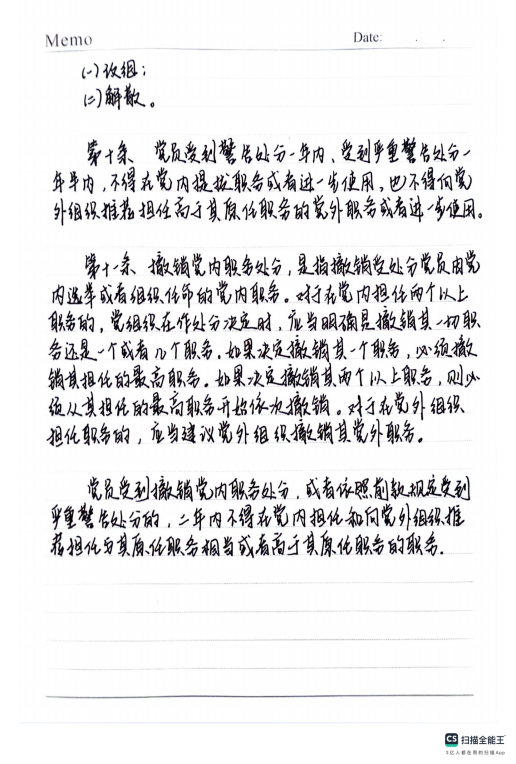 Memo
Date: . .
(一)改组；
(二)解散。
第十条 党员受到警告处分一年内、受到严重警告处分一
年半内，不得在党内提拔职务或者进一步使用，也不得向党
外组织推荐担任高于其原任职务的党外职务或者进一步使用。
第十一条 撤销党内职务处分，是指撤销受处分党员由党
内选举或者组织任命的党内职务。对于在党内担任两个以上
职务的，党组织在作处分决定时，应当明确是撤销其一切职
务还是一个或者几个职务。如果决定撤销其一个职务，必须撤
销其担任的最高职务。如果决定撤销其两个以上职务，则必
须从其担任的最高职务开始依次撤销。对于在党外组织
担任职务的，应当建议党外组织撤销其党外职务。
党员受到撤销党内职务处分，或者依照前款规定受到
严重警告处分的，二年内不得在党内担任和向党外组织推
荐担任与其原任职务相当或者高于其原任职务的职务.
CS 扫描全能王
3亿人都在用的扫描App